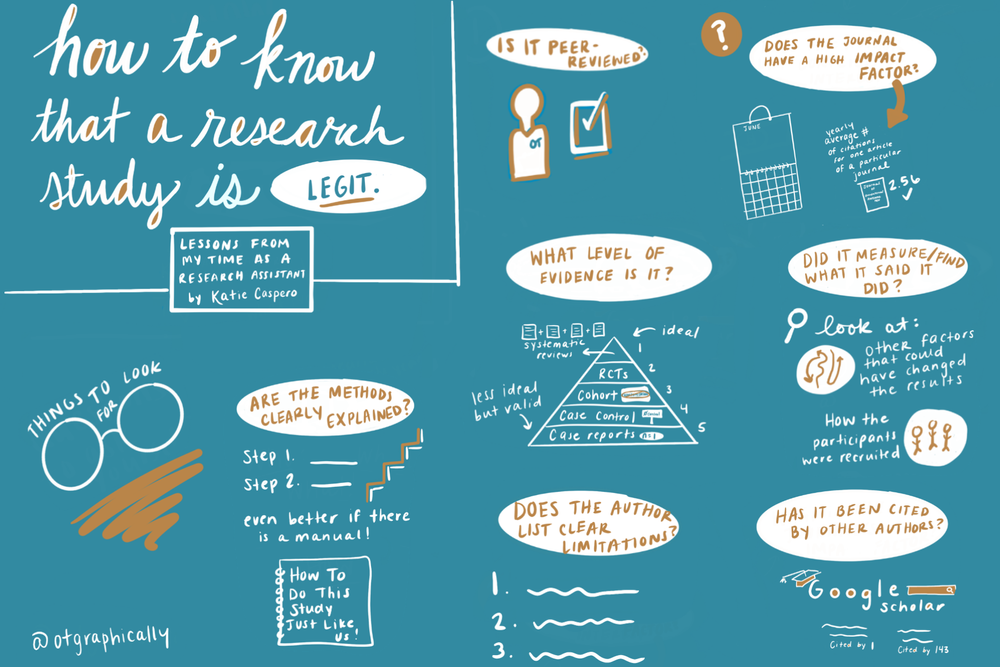 how to know
that a research
study is LEGIT.
LESSONS FROM
MY TIME AS A
RESEARCH ASSISTANT
by Katie Caspero
THINGS TO LOOK
FOR
ARE THE METHODS
CLEARLY EXPLAINED?
Step 1.
Step 2.
even better if there
is a manual!
How To
Do This
Study
Just Like
us!
@otgraphically
IS IT PEER-
REVIEWED?
OT
?
DOES THE JOURNAL
HAVE A HIGH IMPACT
FACTOR?
JUNE
yearly
average #
of citations
for one article
of a particular
journal
2.56
WHAT LEVEL OF
EVIDENCE IS IT?
systematic
reviews
ideal
1
RCTs 2
Cohort 3
Case Control 4
Case reports n=1 5
less ideal
but valid
DID IT MEASURE/FIND
WHAT IT SAID IT
DID?
look at:
Other factors
that could
have changed
the results
How the
participants
were recruited
DOES THE AUTHOR
LIST CLEAR
LIMITATIONS?
1.
2.
3.
HAS IT BEEN CITED
BY OTHER AUTHORS?
Google
scholar
Cited by 1
Cited by 143